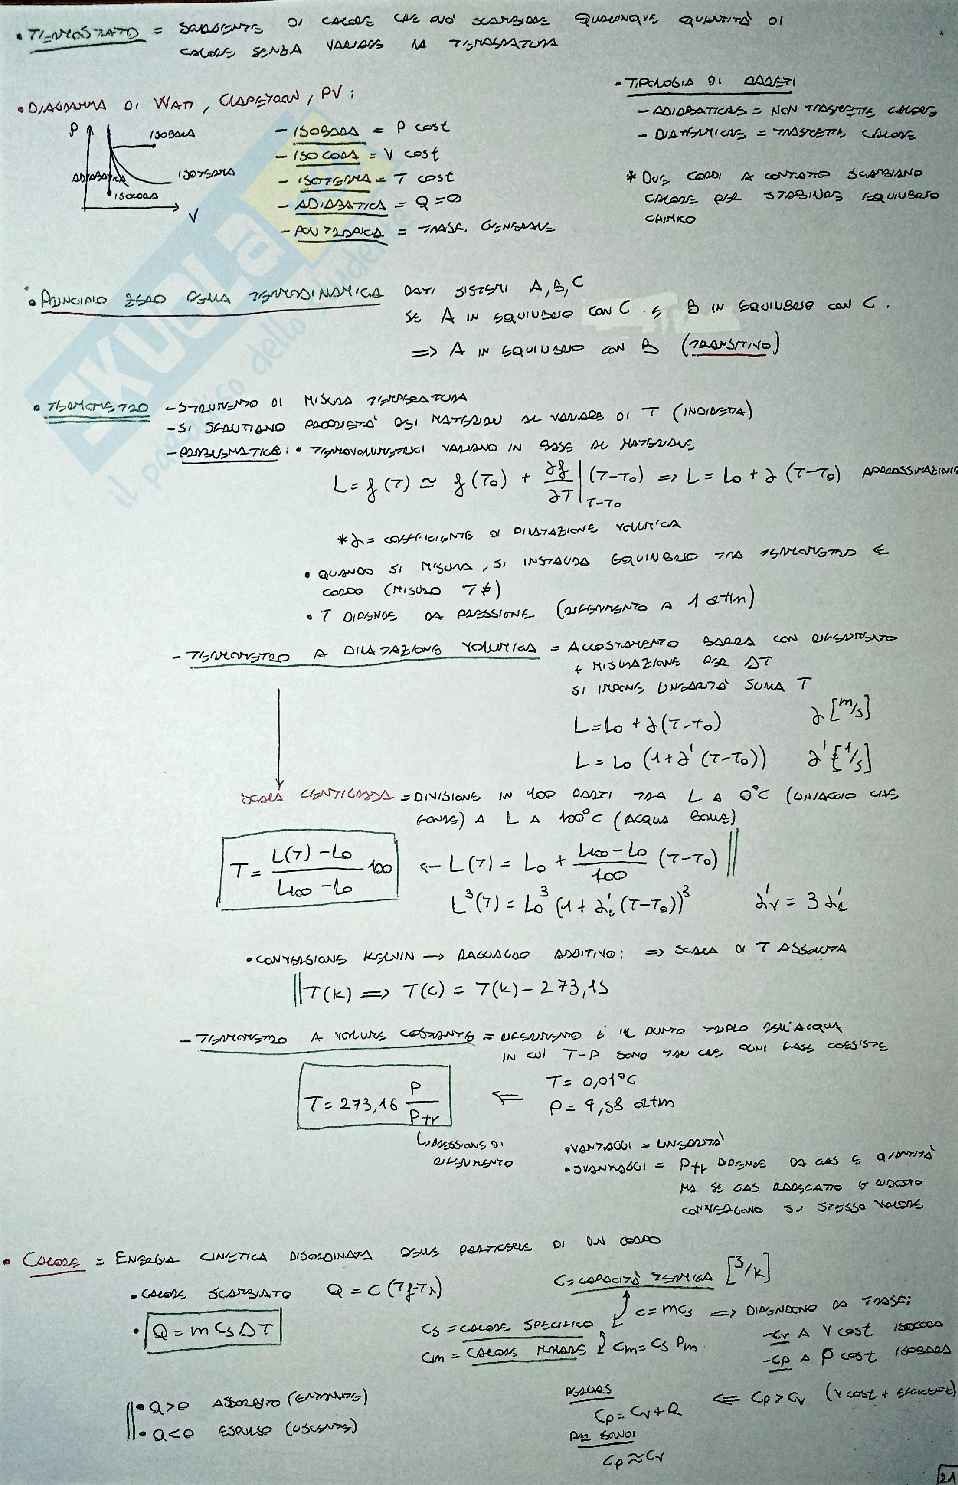 • TERMOSTATO = SORGENTE DI CALORE CHE PUÒ SCAMBIARE QUALUNQUE QUANTITÀ DI
CALORE SENZA VARIARE LA TEMPERATURA
• DIAGRAMMA DI WATT, CLAPEYRON, PV:
P
ISOBARA
ADIABATICA
ISOTERMA
ISOCORA
V
- ISOBARA = P cost
- ISOCORA = V cost
- ISOTERMA = T cost
- ADIABATICA = Q=0
- POLITROPICA = TRASF. GENERALE
• TIPOLOGIA DI PARETI
- ADIABATICHE = NON TRASMETTE CALORE
- DIATERMICHE = TRASMETTE CALORE
* DUE CORPI A CONTATTO SCAMBIANO
CALORE PER STABILIRE EQUILIBRIO
CHIMICO
• PRINCIPIO ZERO DELLA TERMODINAMICA DATI SISTEMI A, B, C
SE A IN EQUILIBRIO CON C E B IN EQUILIBRIO CON C.
=> A IN EQUILIBRIO CON B (TRANSITIVO)
• TERMOMETRO - STRUMENTO DI MISURA TEMPERATURA
- SI SFRUTTANO PROPRIETÀ DEI MATERIALI AL VARIARE DI T (INDIRETTA)
- PROBLEMATICHE: • TERMOVOLUMETRICI VARIANO IN BASE AL MATERIALE
L = f(T) ≃ f(T₀) + ∂f/∂T | T-T₀ (T-T₀) => L = L₀ + λ (T-T₀) APPROSSIMAZIONE
* λ = COEFFICIENTE DI DILATAZIONE VOLUMICA
• QUANDO SI MISURA, SI INSTAURA EQUILIBRIO TRA TERMOMETRO E
CORPO (MISURO T ≠)
• T DIPENDE DA PRESSIONE (RIFERIMENTO A 1 atm)
- TERMOMETRO A DILATAZIONE VOLUMICA = ACCOSTAMENTO BARRA CON RIFERIMENTO
+ MISURAZIONE PER ΔT
SI IMPONE LINEARITÀ SULLA T
L = L₀ + λ(T-T₀) λ [m/s]
L = L₀ (1+λ' (T-T₀)) λ' [1/s]
SCALA CENTIGRADA = DIVISIONE IN 100 PARTI TRA L A 0°C (GHIACCIO CHE
FONDE) A L A 100°C (ACQUA BOLLE)
T = L(T) - L₀ / L₁₀₀ - L₀ 100 ← L(T) = L₀ + L₁₀₀ - L₀ / 100 (T-T₀) ||
L³(T) = L₀³ (1+λ'ₗ (T-T₀))³ λ'ᵥ = 3 λ'ₗ
• CONVERSIONE KELVIN → RAGUAGLIO ADDITIVO: => SCALA DI T ASSOLUTA
|| T(K) => T(C) = T(K) - 273,15
- TERMOMETRO A VOLUME COSTANTE = RIFERIMENTO È IL PUNTO TRIPLO DELL'ACQUA
IN CUI T-P SONO TALI CHE OGNI FASE COESISTE
T = 273,16 P/Ptr <= T = 0,01°C
P = 4,58 atm
↳ PRESSIONE DI
RIFERIMENTO
• VANTAGGI = LINEARITÀ
• SVANTAGGI = Ptr DIPENDE DA GAS E QUANTITÀ
MA SE GAS RAREFATTO
CONVERGONO STESSO VALORE
• CALORE = ENERGIA CINETICA DISORDINATA DELLE PARTICELLE DI UN CORPO
• CALORE SCAMBIATO Q = C (Tf-Ti)
C = CAPACITÀ TERMICA [J/K]
• Q = m Cs ΔT
c = mCs => DIPENDONO DA TRASF:
Cs = CALORE SPECIFICO
- Cv A V cost ISOCORA
Cm = CALORE MOLARE Cm = Cs Pm
- Cp A P cost ISOBARA
|| • Q>0 ASSORBITO (ENTRANTE)
• Q<0 ESPULSO (USCENTE)
<= Cp > Cv
Cp = Cv + R
PER SOLIDI
Cp ≈ Cv
21
SKUOLA
il paradiso dello studente